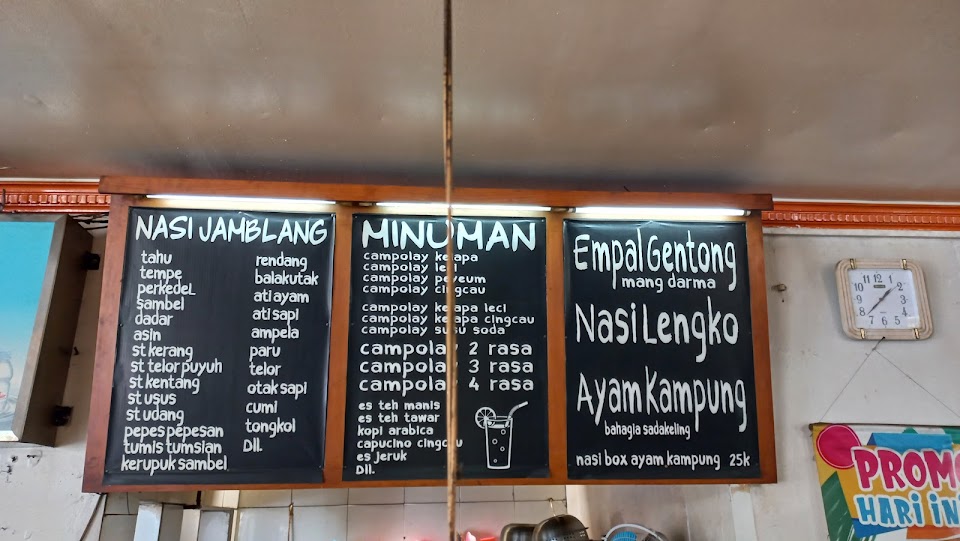 NASI JAMBLANG
tahu
tempe
perkedel
sambel
dadar
asin
st kerang
st telor puyuh
st kentang
st usus
st udang
pepes pepesan
tumis tumsian
kerupuk sambel
rendang
balakutak
ati ayam
ati sapi
ampela
paru
telor
otak sapi
cumi
tongkol
Dll.
MINUMAN
campolay kelapa
campolay leci
campolay peyeum
campolay cingcau
campolay kelapa leci
campolay kelapa cingcau
campolay susu soda
campolay 2 rasa
campolay 3 rasa
campolay 4 rasa
es teh manis
es teh tawar
kopi arabica
capucino cingcau
es jeruk
Dll.
Empal Gentong
mang darma
Nasi Lengko
Ayam Kampung
bahagia sadakeling
nasi box ayam kampung 25k
12
1
2
3
4
5
6
7
8
9
10
11
PROMO
HARI INI